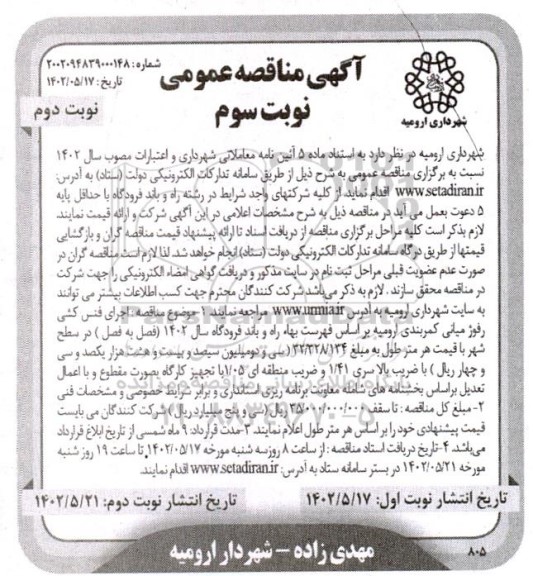 شماره: ۲۰۰۲۰۹۴۸۳۹۰۰۰۱۴۸
تاریخ: ۱۴۰۲/۰۵/۱۷
نوبت دوم
آگهی مناقصه عمومی
نوبت سوم
شهرداری ارومیه
شهرداری ارومیه در نظر دارد به استناد ماده ۵ آئین نامه معاملاتی شهرداری و اعتبارات مصوب سال ۱۴۰۲
نسبت به برگزاری مناقصه عمومی به شرح ذیل از طریق سامانه تدارکات الکترونیکی دولت (ستاد) به آدرس:
www.setadiran.ir اقدام نماید از کلیه شرکتهای واجد شرایط در رشته راه و باند فرودگاه با حداقل پایه
۵ دعوت بعمل می آید در مناقصه ذیل به شرح مشخصات اعلامی در این آگهی شرکت و ارائه قیمت نمایند.
لازم بذکر است کلیه مراحل برگزاری مناقصه از دریافت اسناد تا ارائه پیشنهاد قیمت مناقصه گران و بازگشایی
قیمتها از طریق درگاه سامانه تدارکات الکترونیکی دولت (ستاد) انجام خواهد شد. لذا لازم است مناقصه گران در
صورت عدم عضویت قبلی مراحل ثبت نام در سایت مذکور و دریافت گواهی امضاء الکترونیکی را جهت شرکت
در مناقصه محقق سازند. لازم به ذکر می‌باشد شرکت کنندگان محترم جهت کسب اطلاعات بیشتر می توانند
به سایت شهرداری ارومیه به آدرس www.urmia.ir مراجعه نمایند. ۱- موضوع مناقصه: اجرای فنس کشی
رفوژ میانی کمربندی ارومیه بر اساس فهرست بهاء راه و باند فرودگاه سال ۱۴۰۲ (فصل به فصل) در سطح
شهر با قیمت هر متر طول به مبلغ ۳۲/۳۲۸/۱۳۴ (سی و دو میلیون سیصد و بیست و هشت هزار یکصد و سی
و چهار ریال) با ضریب بالا سری ۱/۴۱ و ضریب منطقه ای ۱/۰۵ با تجهیز کارگاه بصورت مقطوع و با اعمال
تعدیل براساس بخشنامه های سامانه معاونت برنامه ریزی استانداری و برابر شرایط خصوصی و مشخصات فنی
۲- مبلغ کل مناقصه: تا سقف ۳۵/۰۰۰/۰۰۰/۰۰۰ ریال (سی و پنج میلیارد ریال) شرکت کنندگان می بایست
قیمت پیشنهادی خود را بر اساس هر متر طول اعلام نمایند. ۳- مدت قرارداد: ۹ ماه شمسی از تاریخ ابلاغ قرارداد
می‌باشد. ۴- تاریخ دریافت اسناد مناقصه: از ساعت ۸ روز سه شنبه مورخه ۱۴۰۲/۰۵/۱۷ تا ساعت ۱۹ روز شنبه
مورخه ۱۴۰۲/۰۵/۲۱ در بستر سامانه ستاد به آدرس: www.setadiran.ir اقدام نمایند.
تاریخ انتشار نوبت اول: ۱۴۰۲/۵/۱۷
تاریخ انتشار نوبت دوم: ۱۴۰۲/۵/۲۱
مهدی زاده – شهردار ارومیه
۸۰۵